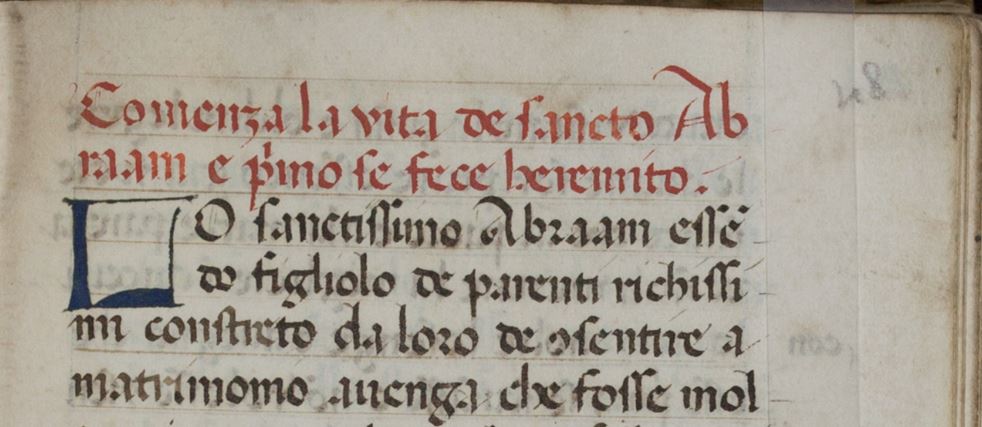 Comenza la vita de sancto Ab
raam e p̃mo se fece heremito.
LO sanctissimo Abraam essē
do figliolo de parenti richissi
mi constreto da loro de ꝯsentire a
matrimonio auenga che fosse mol